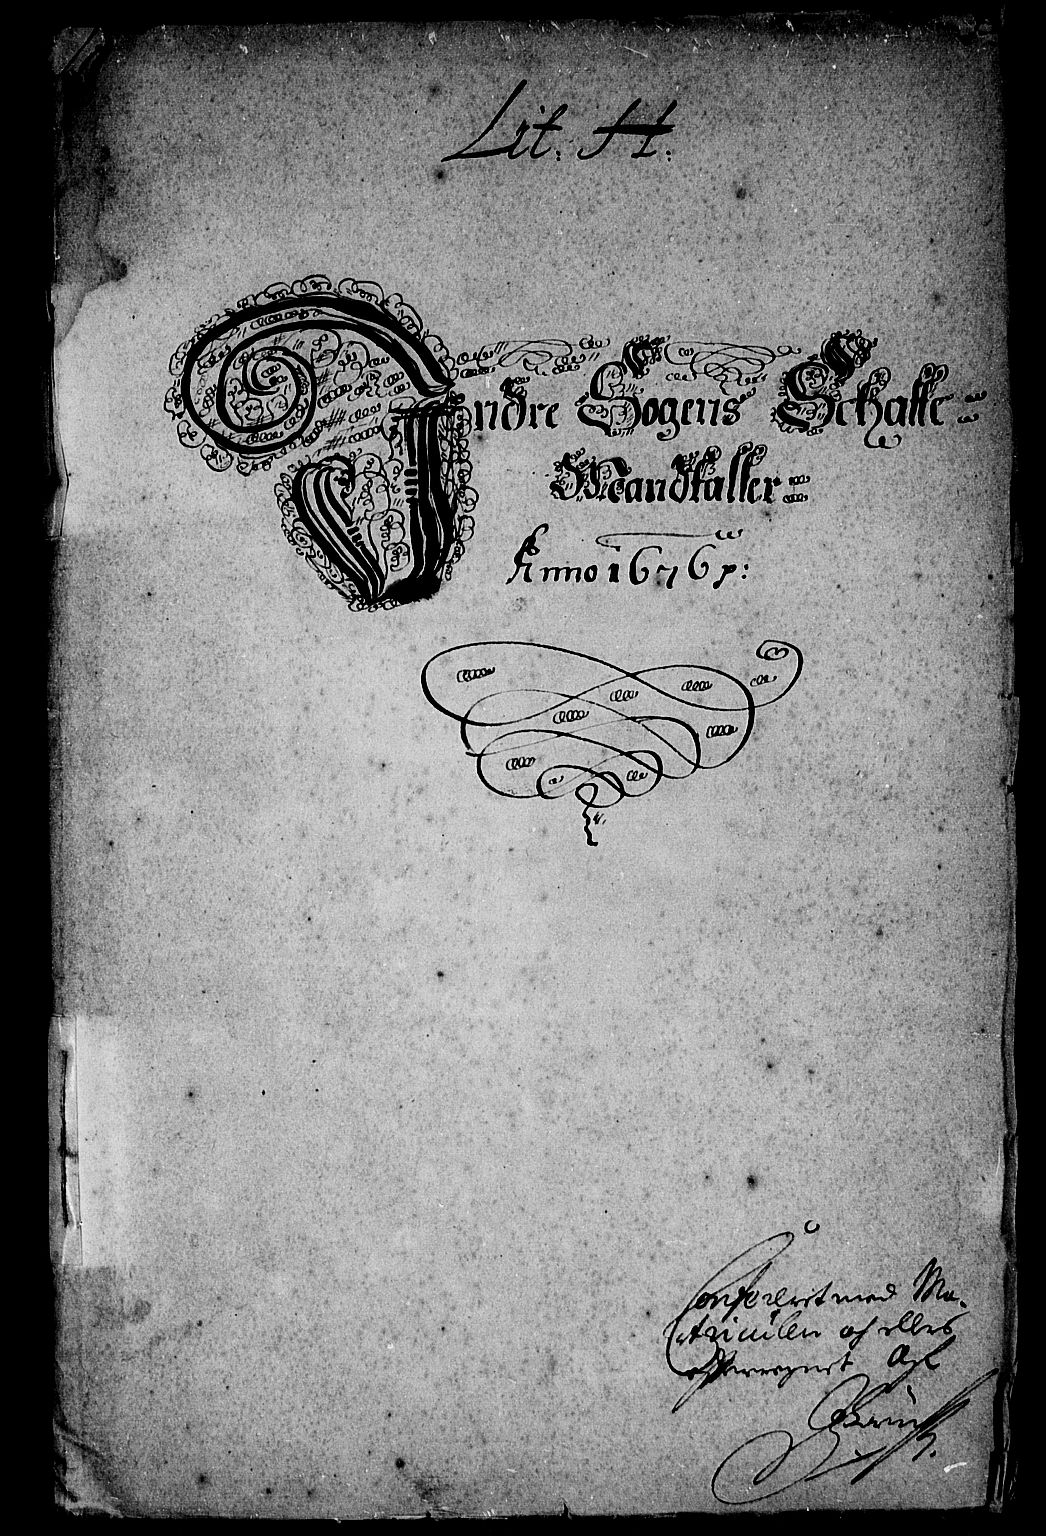 Lit: H:
Indre Sogens Schatte=
Mandtaller=
Anno 1676 p:
Confererit med Ma-
triculen och elles
efterregnet Af